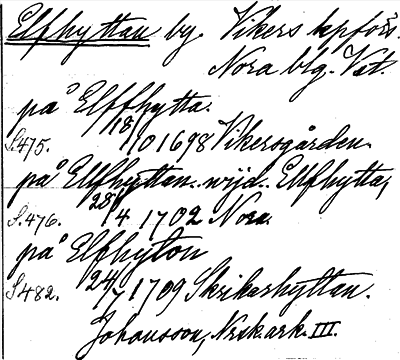 Elfhyttan by. Vikers kpförs.
Nora blg. Vst.
på Elffhytta.
S.475. 18/10 1698 Vikersgården.
på Elfhyttan. wijd. Elfhytta,
S.476. 28/4 1702 Nora.
på Elfhyton
S.482. 24/7 1709 Skrikarhyttan.
Johansson, Nrsk.ark. III.